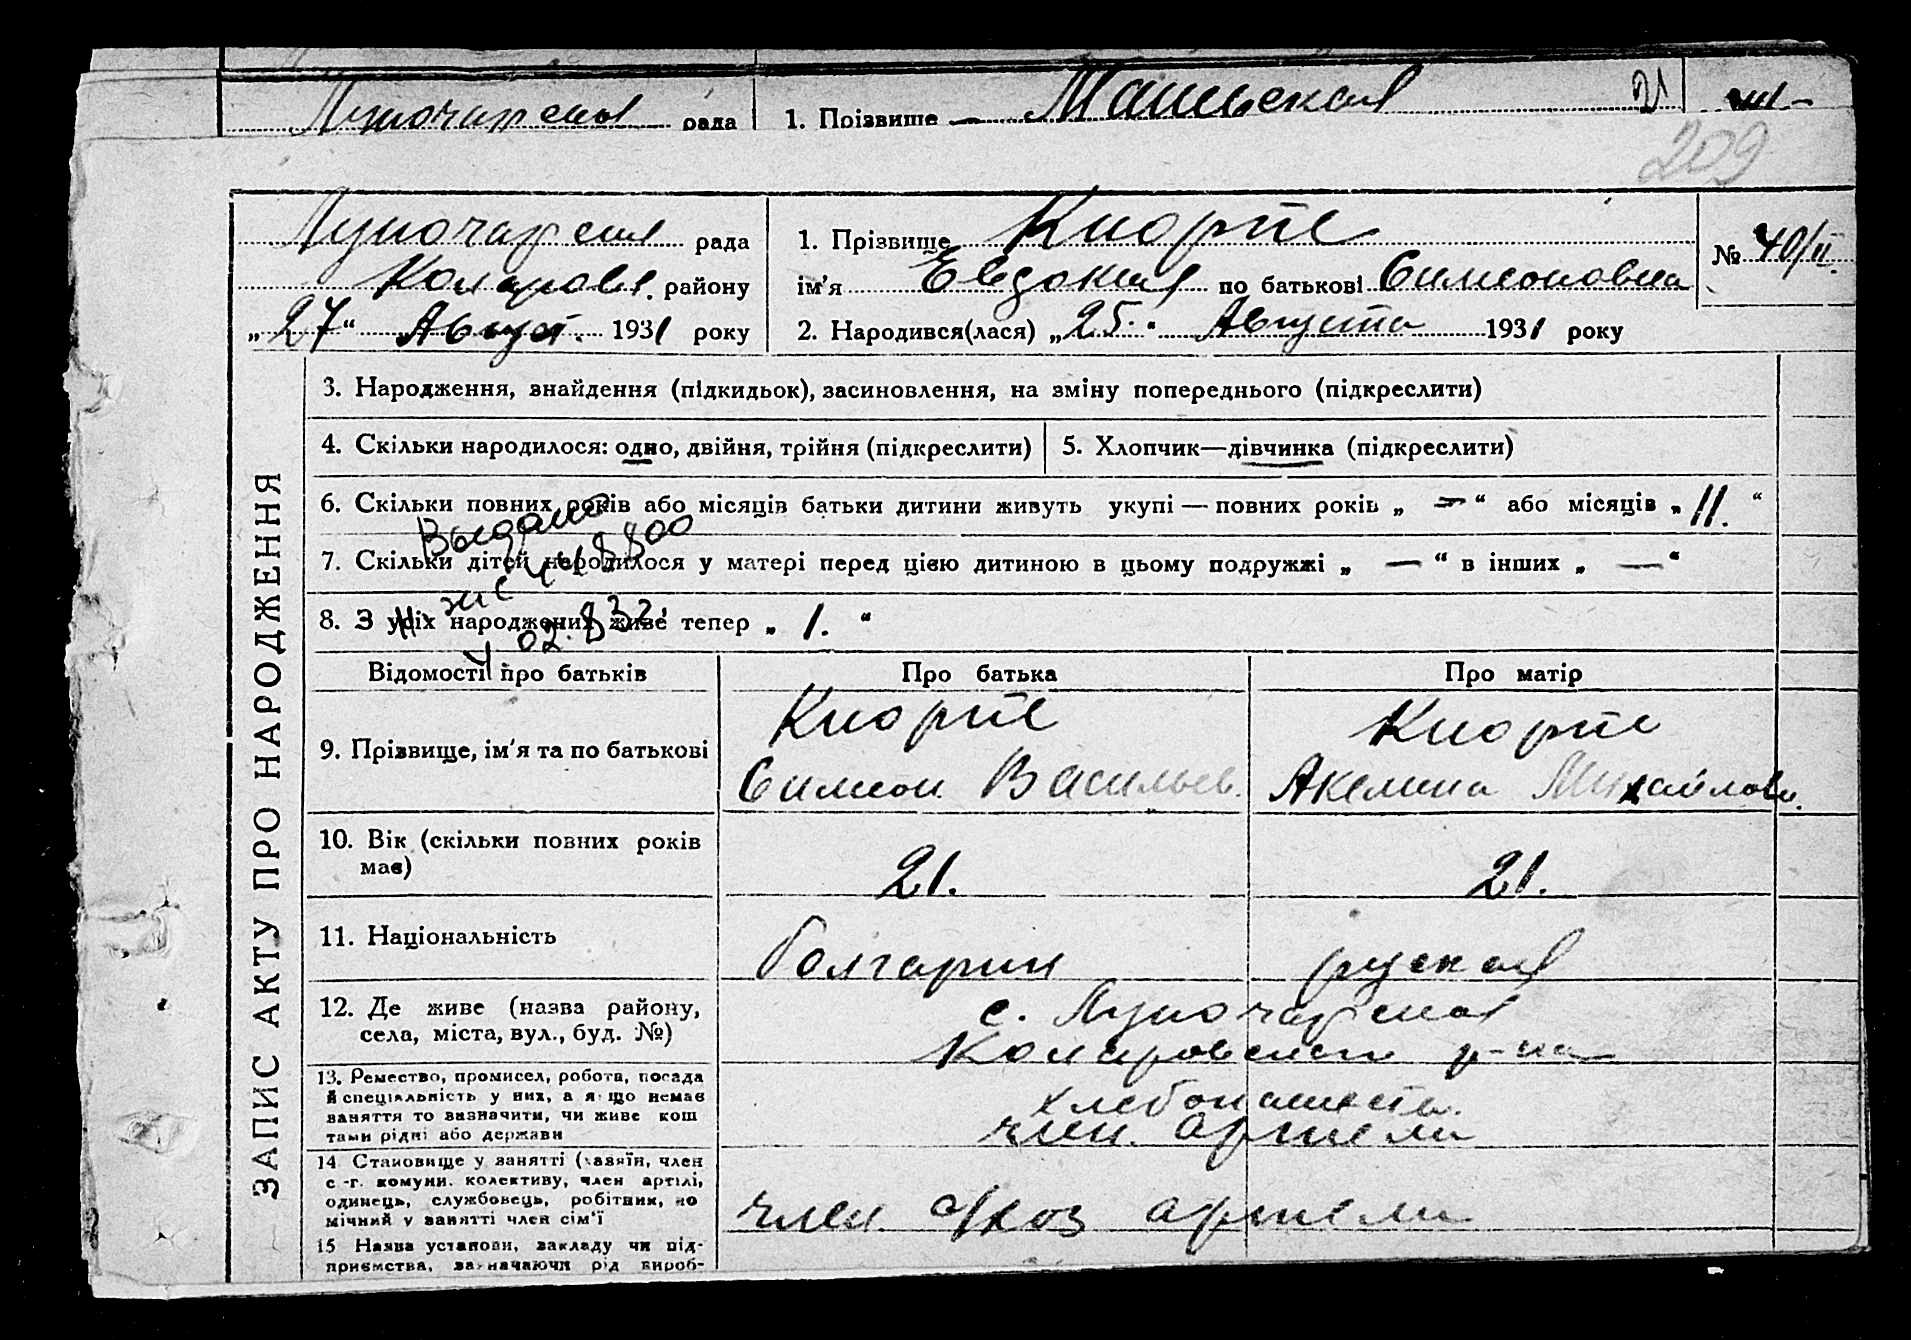 Луночарская рада
1. Прізвище 21
209
Луночарская рада
Коларовс. району
„27“ Август. 1931 року
1. Прізвище Кнорте
ім'я Евдокия по батькові Симеоновна
№ 40/II.
2. Народився(лася) „25.“ Августа 1931 року
ЗАПИС АКТУ ПРО НАРОДЖЕННЯ
3. Народження, знайдення (підкидьок), засиновлення, на зміну попереднього (підкреслити)
4. Скільки народилося: одно, двійня, трійня (підкреслити)
5. Хлопчик—дівчинка (підкреслити)
6. Скільки повних років або місяців батьки дитини живуть укупі — повних років „ — “ або місяців „ 11. “
Выдано
7. Скільки дітей народилося у матері перед цією дитиною в цьому подружжі „ — “ в інших „ — “
8. З усіх народжених живе тепер „ 1. “
Відомості про батьків
Про батька
Про матір
9. Прізвище, ім'я та по батькові
Кнорте
Симеон Васильев.
Кнорте
Акелина Михайловн.
10. Вік (скільки повних років
має)
21.
21.
11. Національність
болгарин
руская
12. Де живе (назва району,
села, міста, вул., буд. №)
с. Луночарская
Коларовского р-на
13. Ремество, промисел, робота, посада
й спеціяльність у них, а якщо немає
заняття то зазначити, чи живе кош
тами рідні або держави
хлебопашеств.
член. артели
14 Становище у занятті (хазяїн, член
с.-г. комуни. колективу, член артілі,
одинець, службовець, робітник, по
мічний у занятті член сім'ї
член с/хоз артели
15 Назва установи, закладу чи під-
приємства, зазначаючи рід вироб-